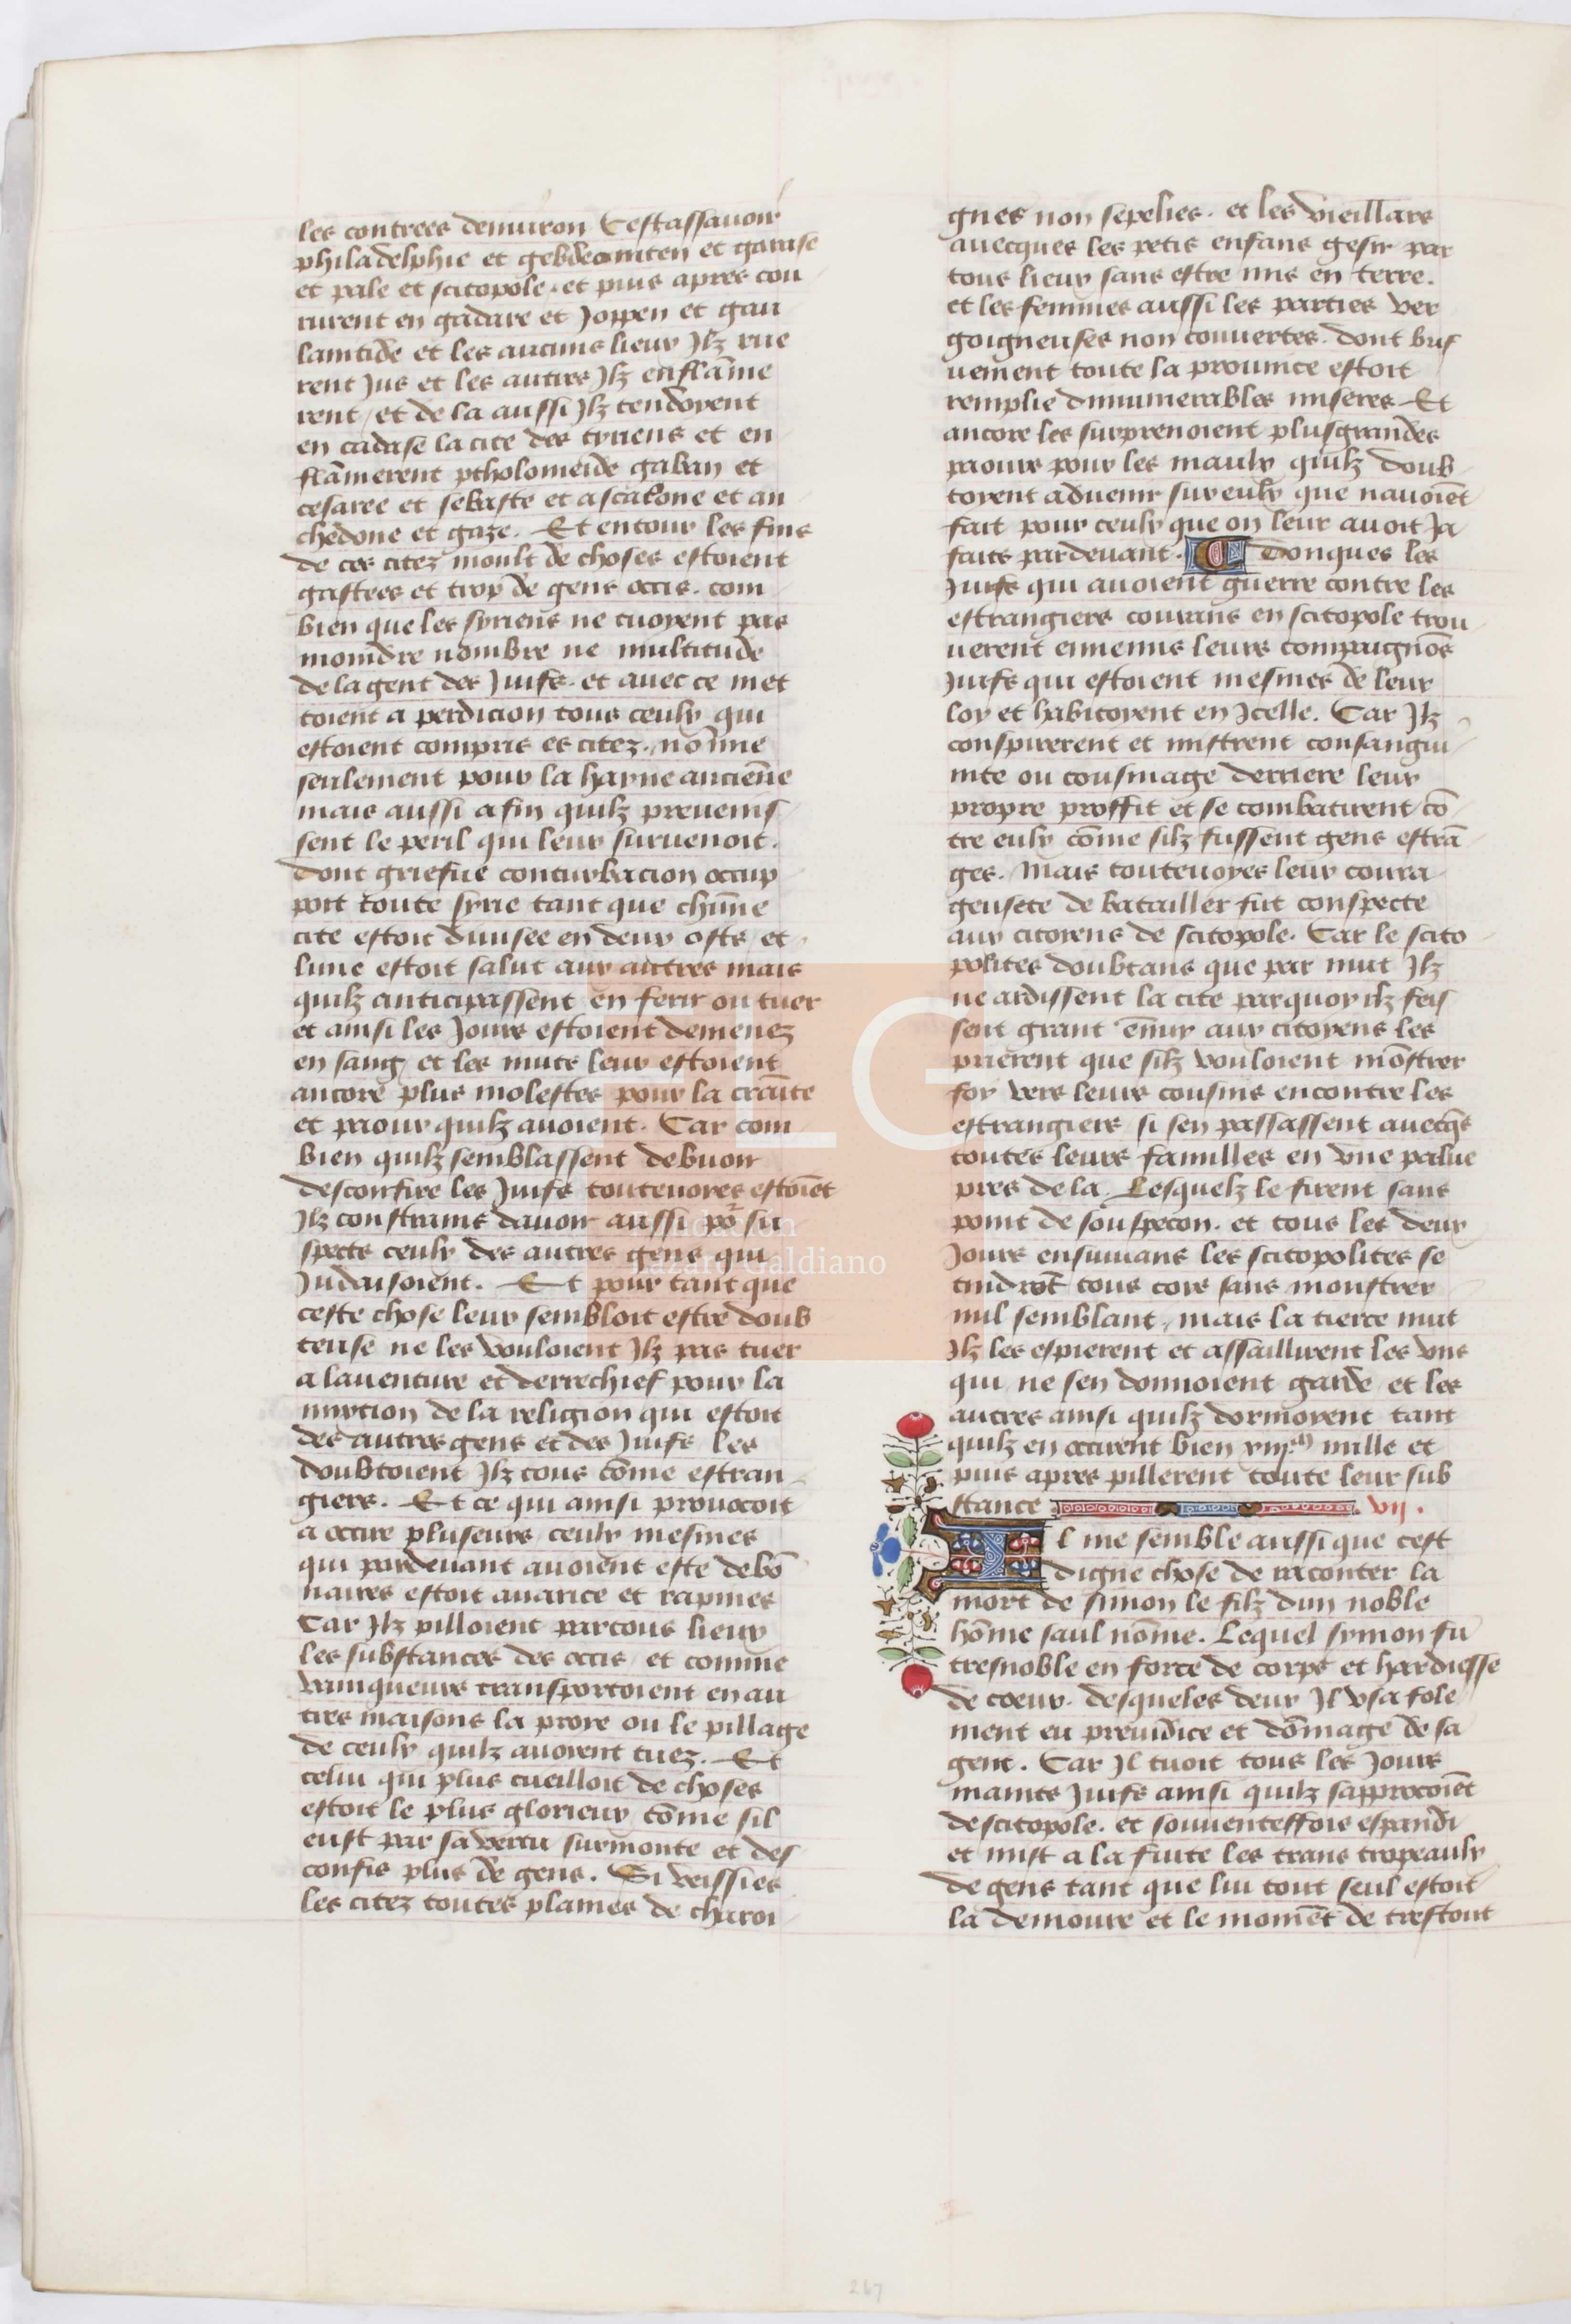 les contrees denuiron Cestassauoir
philadelphie et gebdeomten et garase
et pale et scitopole. et puis apres cou
rurent en gadare et Joppen et gau
lamtide et les aucuns lieux Ilz rue
rent Jus et les autres Ilz enflāme
rent / et de la aussi Ilz tendoyent
en cadase la cite des tyriens et en
flāmerent ptholomeide gaban et
cesaree et sebaste et ascalone et an
chedone et gaze. Et entour les fins
de ces citez moult de choses estoient
gastees et trop de gens occis. com
bien que les syriens ne tuoyent pas
moindre nombre ne multitude
de la gent des Juifs. et auec ce met
toient a perdicion tous ceulx qui
estoient compris es citez. nōmie
seulement pour la hayne anciēne
mais aussi afin quilz preuenis
sent le peril qui leur suruenoit.
dont griefue conturbacion occup
poit toute syrie tant que chūne
cite estoit diuisee en deux osts / et
lune estoit salut aux autres mais
quilz anticipassent en ferir ou tuer
et ainsi les Jours estoient demenez
en sang / et les nuits leur estoient
ancore plus molestes pour la crāite
et paour quilz auoient. Car com
bien quilz semblassent debuoir
desconfire les Juifs touteuoyes estoiēt
Ilz constrains dauoir aussi po2 su
spects ceulx des autres gens qui
Judaisoient. Et pour tant que
ceste chose leur sembloit estre doub
teuse ne les vouloient Ilz pas tuer
a lauenture et derrechief pour la
mixcion de la religion qui estoit
des autres gens et des Juifs les
doubtoient Ilz tous cōme estran
giers. Et ce qui ainsi prouocoit
a occire pluseurs ceulx mesmes
qui pardeuant auoient este debō
naires estoit auarice et rapines
Car Ilz pilloient partous lieux
les substances des occis / et comme
vainqueurs transportoient en au
tres maisons la proye ou le pillage
de ceulx quilz auoient tuez. Et
celui qui plus cueilloit de choses
estoit le plus glorieux cōme sil
eust par sa vertu surmonte et des
confis plus de gens. Si veissies
les citez toutes plaines de charoi
gnes non sepelies. et les vieillars
auecques les petis enfans gesir par
tous lieux sans estre mis en terre.
et les femmes aussi les parties ver
goigneuses non couuertes. dont brif
uement toute la prouince estoit
remplie dinumerables miseres Et
ancore les surprenoient plusgrandes
paours pour les maulx quilz doub
toyent aduenir sur eulx que nauoiēt
fait pour ceulx que on leur auoit Ja
faits pardeuant. Donques les
Juifs qui auoient guerre contre les
estrangiers courans en scitopole trou
uerent ennemis leurs compaignōs
Juifs qui estoient mesmes de leur
loy et habitoyent en Icelle. Car Ilz
conspirerent et mistrent consangui
nite ou cousinage derriere leur
propre proffit et se combatirent cō
tre eulx cōme silz fussent gens estrā
ges. Mais touteuoyes leur coura
geusete de batailler fut conspecte
aux citoyens de scitopole. Car le scito
polites doubtans que par nuit Ilz
ne ardissent la cite parquoy ilz feis
sent grant ēnuy aux citoyens les
prierent que silz vouloient mōstrer
foy vers leurs cousins encontre les
estrangiers si sen passassent auecq̄s
toutes leurs familles en vne palue
pres de la. Lesquelz le firent sans
point de souspecon. et tous les deux
Jours ensuiuans les scitopolites se
tindrōt tous cois sans monstrer
nul semblant, mais la tierce nuit
Ilz les espierent et assaillirent les vns
qui ne sen donnoient garde / et les
autres ainsi quilz dormoyent tant
quilz en occirent bien xiij. mille et
puis apres pillerent toute leur sub
stance. vij.
Il me semble aussi que cest
digne chose de raconter la
mort de simon le filz dun noble
hōme saul nōme. Lequel symon fu
tresnoble en force de corps et hardiesse
de coeur. desqueles deux Il vsa fole
ment en preiudice et dōmage de sa
gent. Car Il tuoit tous les Jours
maints Juifs ainsi quilz sapprocoiēt
de scitopole. et souuenteffois espandi
et mist a la fuite les trans tropeaulx
de gens tant que lui tout seul estoit
la demoure et le momēt de trestout
FLG
Fundación
Lázaro Galdiano
267